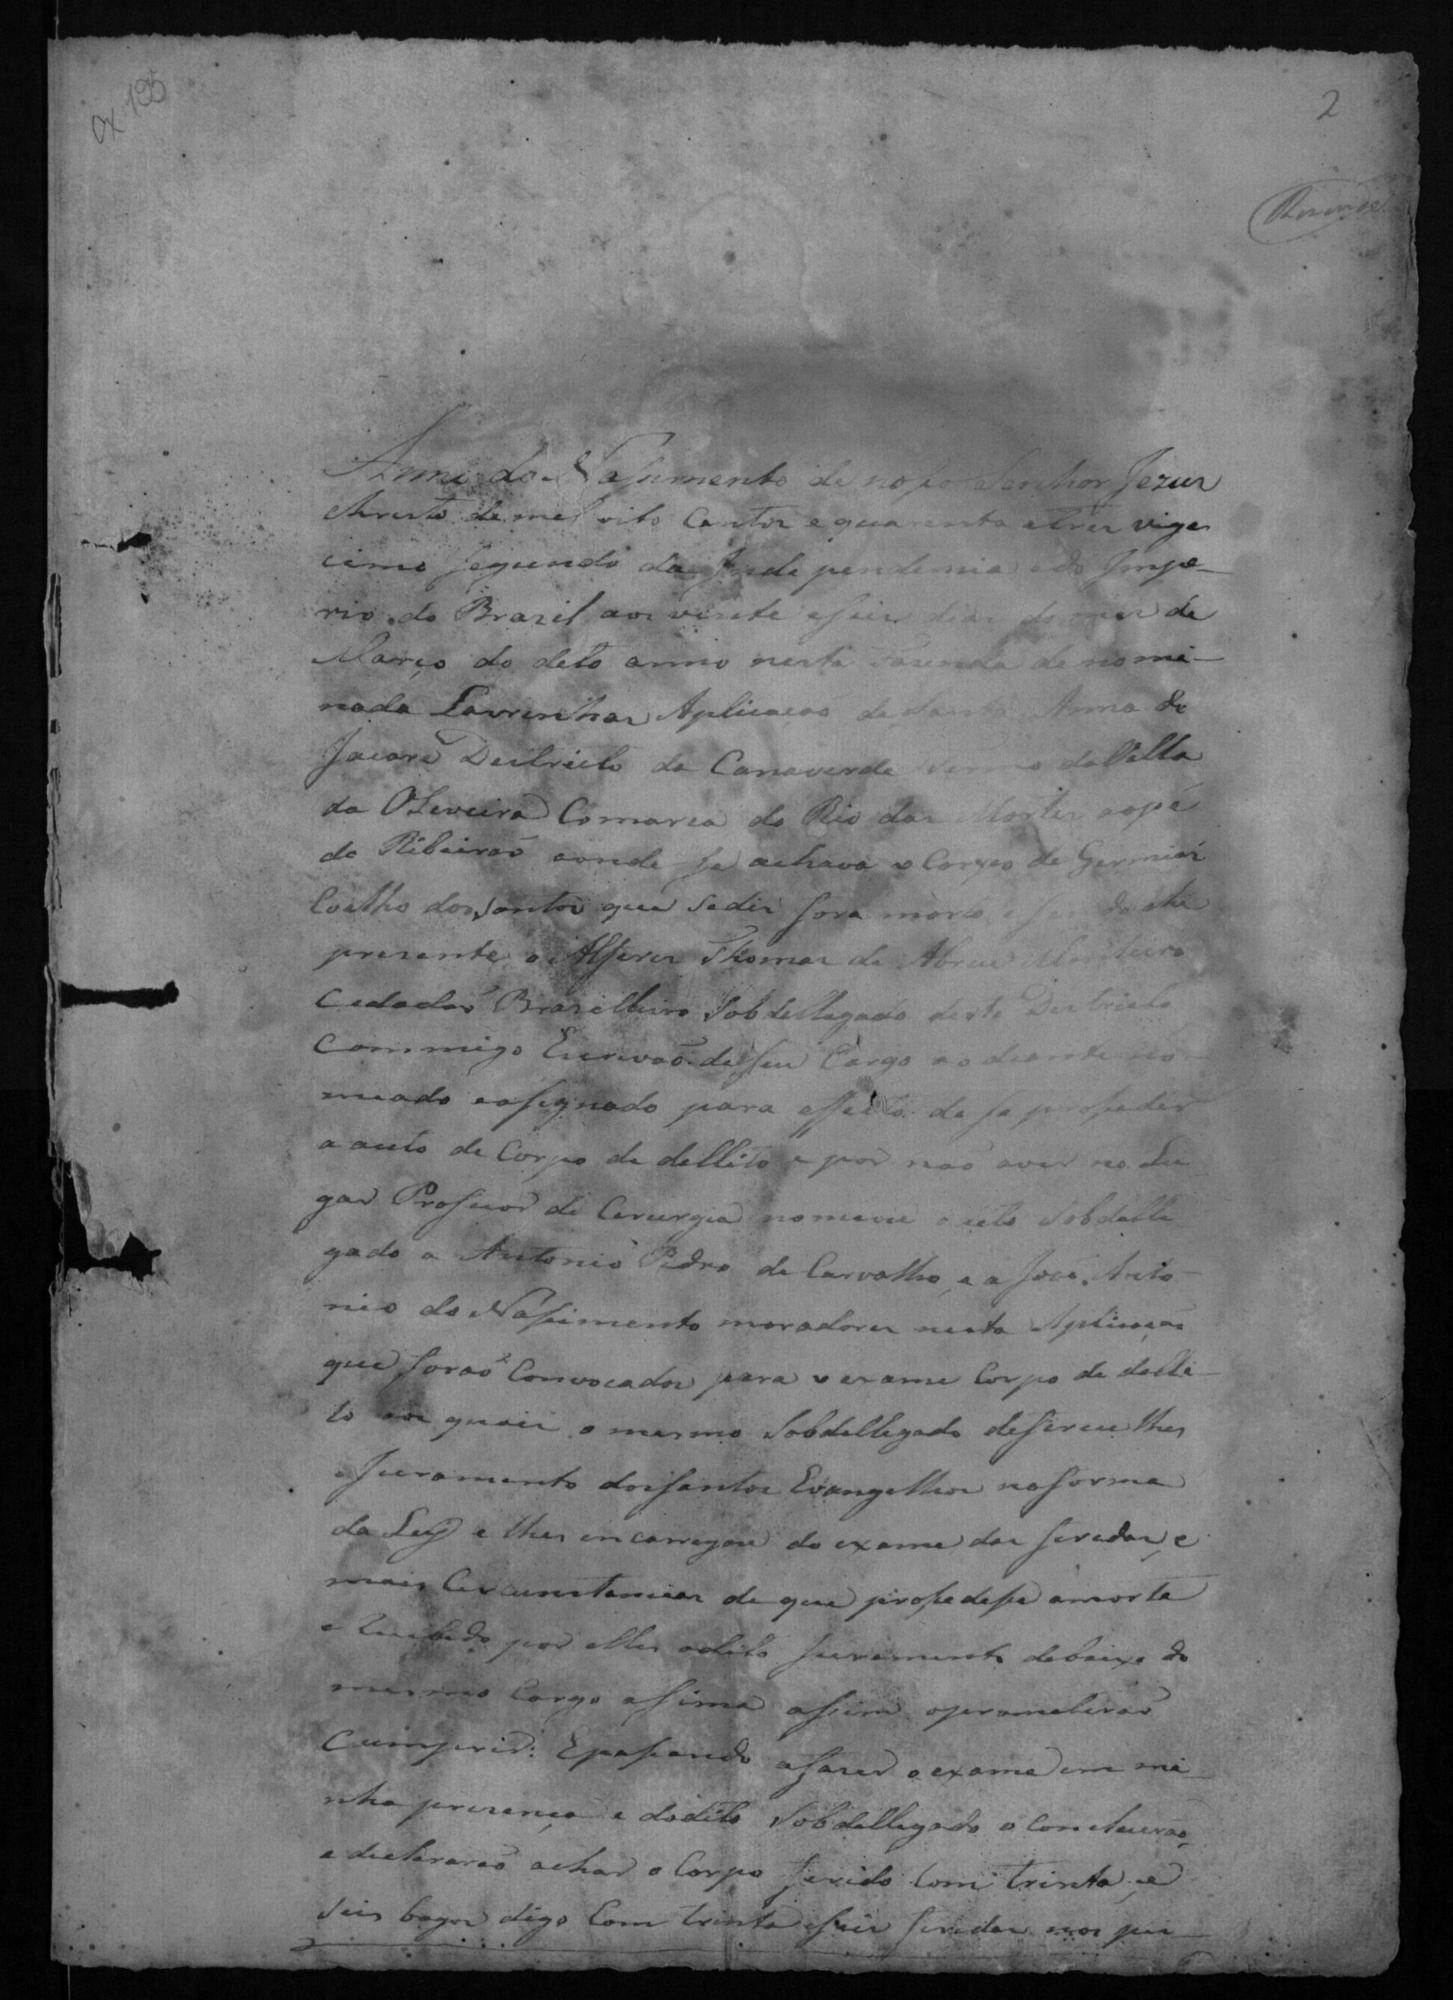 cx 195
2
Anno do Nassimento de nosso Senhor Jezus
Christo de mel oito Centos e quarenta e tres vige
cimo segundo da Independencia e do Impe-
rio do Brazil aos vinte e seis dias do mes de
Março do dito anno nesta Fazenda de nomi-
nada Lavrinhas Aplicacaõ de Santa Anna do
Jacaré Destricto da Canaverde Termo da Villa
da Oliveira Comarca do Rio das Mortes aopé
do Ribeiraõ aonde se achava o Corpo de
Coelho dos Santos que sedis fora morto e sendo ahi
presente o Alferes Thomas de Abreu Monteiro
Cedadaõ Brazilleiro Sobdellegado deste Destricto
Commigo Escrivaõ de seu Cargo ao deante no-
meado e asignado para effeito de se proseder
a auto de Corpo de dellito e por naõ aver no Lu
gar Profesor de Cerurgia nomeou o dito Sobdelle
gado a Antonio Pedro de Carvalho, e a José Anto-
nio do Nassimento moradores nesta Aplicaçaõ
que foraõ Convocados para o exame Corpo de delli-
to aos quais o mesmo Sobdellegado defereu lhes
o Juramento dos santos Evangelhos na forma
da Ley e lhes encarregou do exame das feredas, e
mais Cercunstancias de que prosedese amorte
e Recebido por elles odito Juramento debaixo do
mesmo Cargo assima assim oprometeraõ
Cumprir: E pasando a fazer o exame em mi
nha presença e do dito Sobdellegado o Concluiraõ,
e declararaõ achar o Corpo ferido Com trinta e
seis bagos digo Com trinta e seis feredas nos pei-